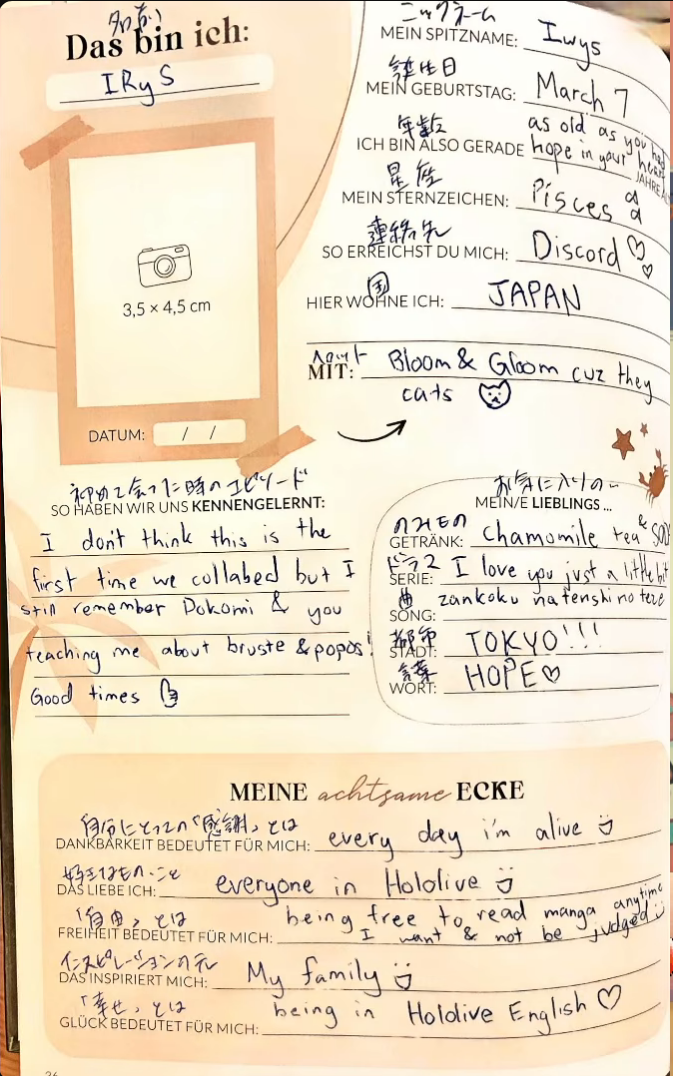 名前
Das bin ich:
IRyS
3,5 × 4,5 cm
DATUM: / /
ニックネーム
MEIN SPITZNAME: Iwys
誕生日
MEIN GEBURTSTAG: March 7
年齢
ICH BIN ALSO GERADE as old as you had hope in your heart JAHRE
星座
MEIN STERNZEICHEN: Pisces
連絡先
SO ERREICHST DU MICH: Discord ♡♡
国
HIER WOHNE ICH: JAPAN
ペット
MIT: Bloom & Gloom cuz they
cats
初めて会った時のエピソード
SO HABEN WIR UNS KENNENGELERNT:
I don't think this is the
first time we collabed but I
still remember Dokomi & you
teaching me about bruste & popos!
Good times
お気に入りの~
MEIN/E LIEBLINGS ...
のみもの
GETRÄNK: chamomile tea & SOD
ドラマ
SERIE: I love you just a little bit
曲
SONG: zankoku na tenshi no teze
都市
STADT: TOKYO!!!
言葉
WORT: HOPE♡
MEINE achtsame ECKE
自分にとっての「感謝」とは
DANKBARKEIT BEDEUTET FÜR MICH: every day i'm alive
好きなもの・こと
DAS LIEBE ICH: everyone in Hololive
「自由」とは
FREIHEIT BEDEUTET FÜR MICH: being free to read manga anytime
I want & not be judged
インスピレーションの元
DAS INSPIRIERT MICH: My family
「幸せ」とは
GLÜCK BEDEUTET FÜR MICH: being in Hololive English ♡